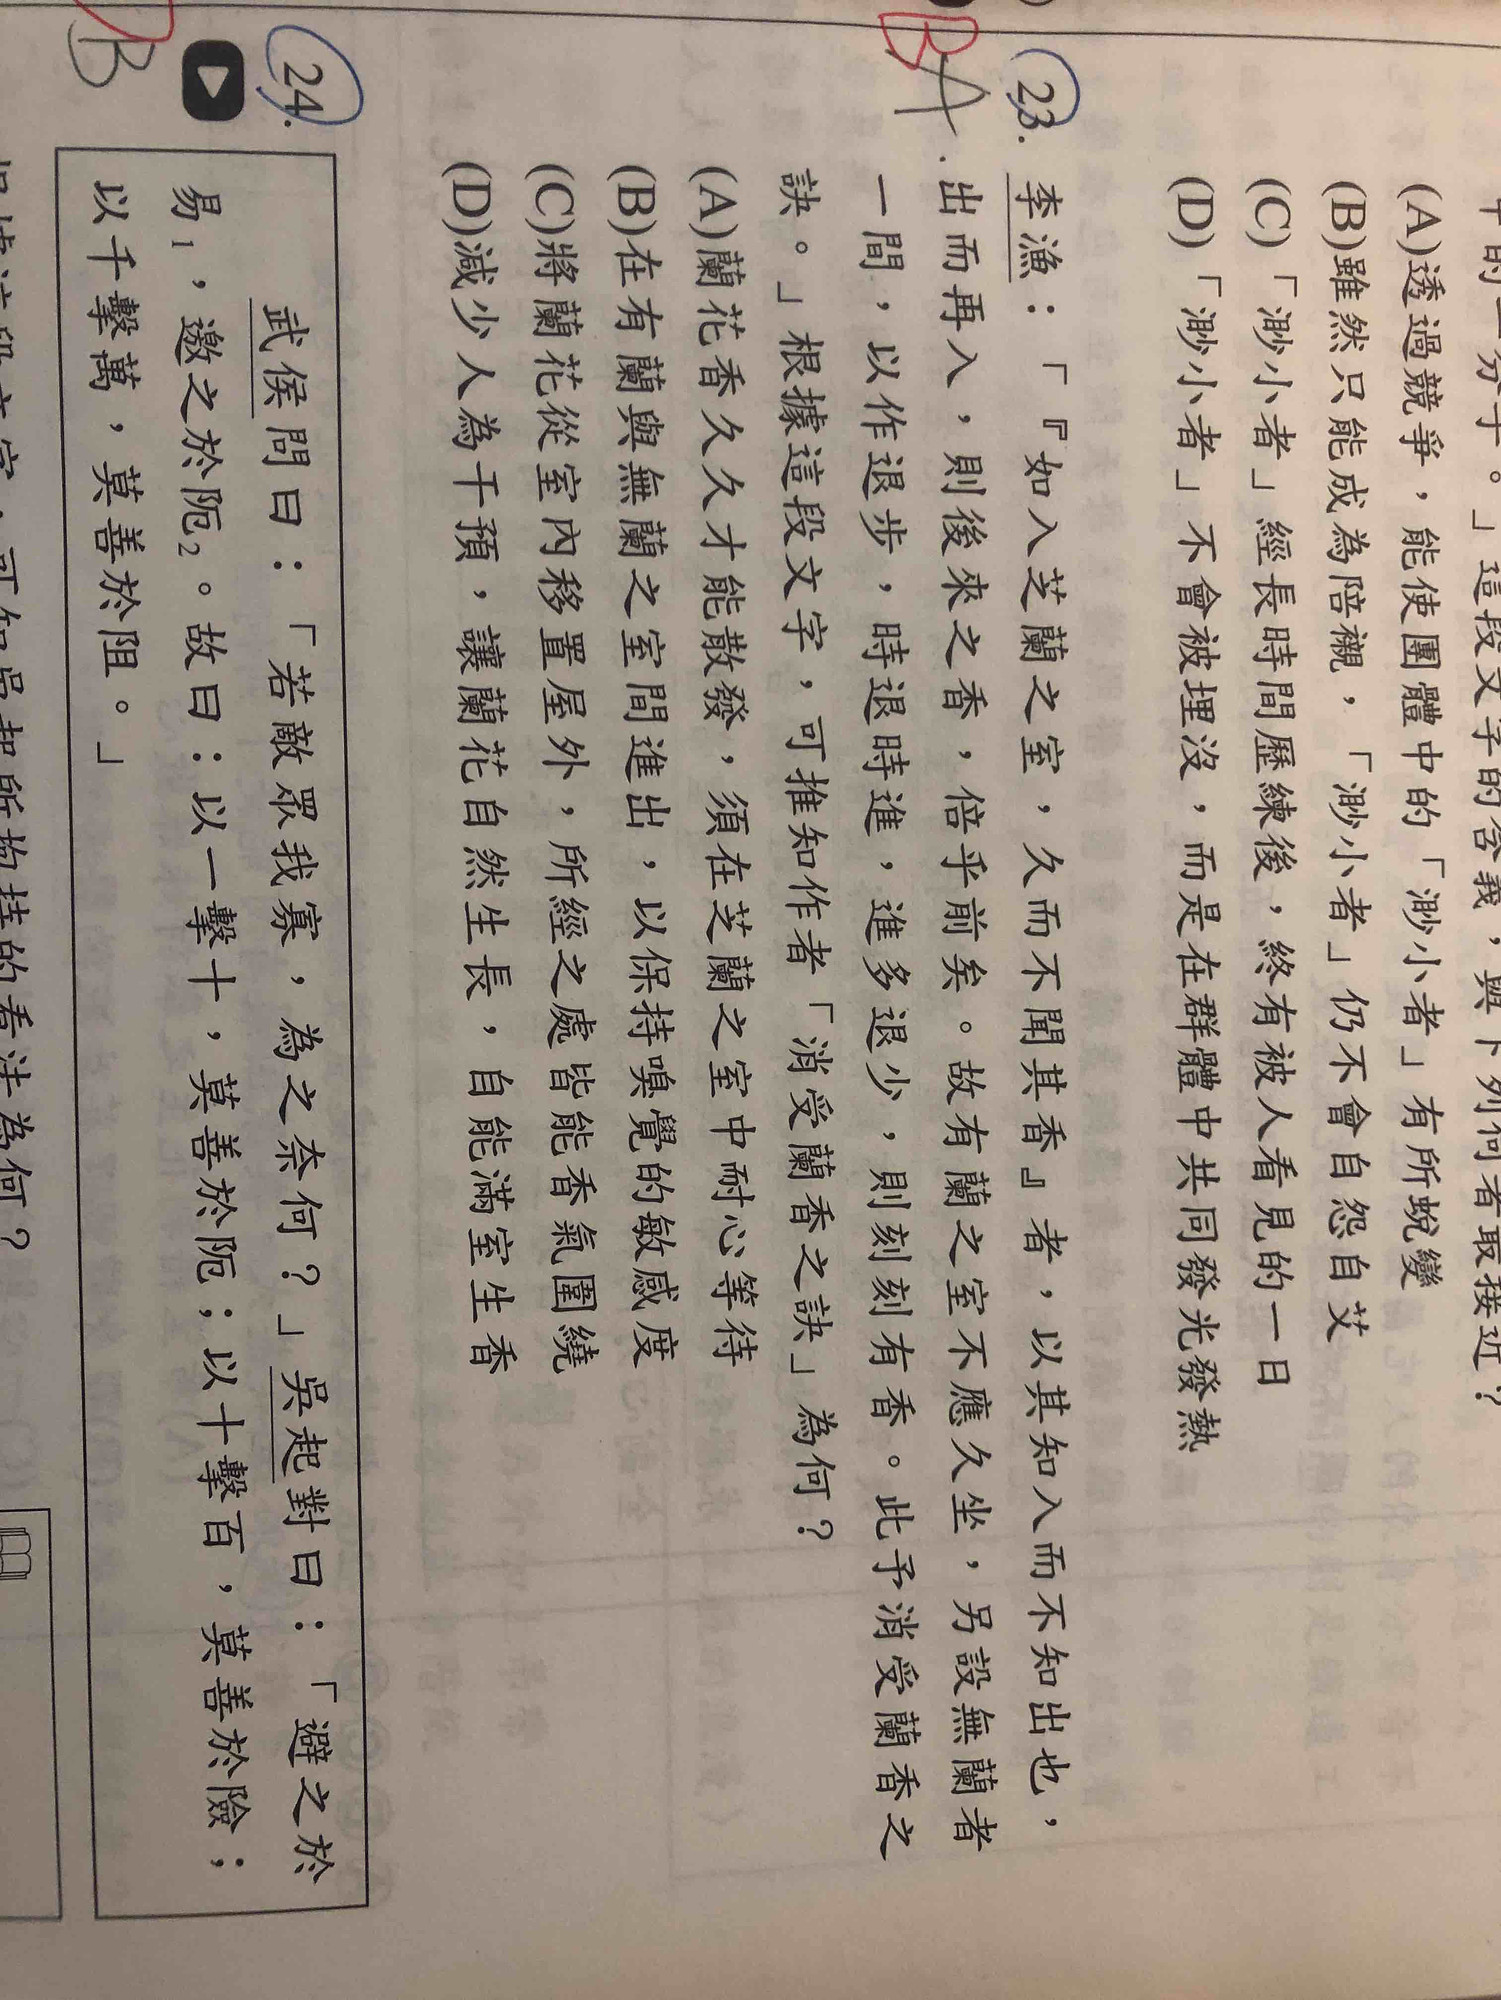 中的一分子。」這段文字的含義，與下列何者最接近？
(A)透過競爭，能使團體中的「渺小者」有所蛻變
(B)雖然只能成為陪襯，「渺小者」仍不會自怨自艾
(C)「渺小者」經長時間歷練後，終有被人看見的一日
(D)「渺小者」不會被埋沒，而是在群體中共同發光發熱
23.李漁：「『如入芝蘭之室，久而不聞其香』者，以其知入而不知出也，
BA
出而再入，則後來之香，倍乎前矣。故有蘭之室不應久坐，另設無蘭者
一間，以作退步，時退時進，進多退少，則刻刻有香。此予消受蘭香之
訣。」根據這段文字，可推知作者「消受蘭香之訣」為何？
(A)蘭花香久久才能散發，須在芝蘭之室中耐心等待
(B)在有蘭與無蘭之室間進出，以保持嗅覺的敏感度
(C)將蘭花從室內移置屋外，所經之處皆能香氣圍繞
(D)減少人為干預，讓蘭花自然生長，自能滿室生香
24.
武侯問曰：「若敵眾我寡，為之奈何？」吳起對曰：「避之於
易1，邀之於阨2。故曰：以一擊十，莫善於阨；以十擊百，莫善於險；
以千擊萬，莫善於阻。」
B
根據這段文字，可知吳起所抱持的看法為何？